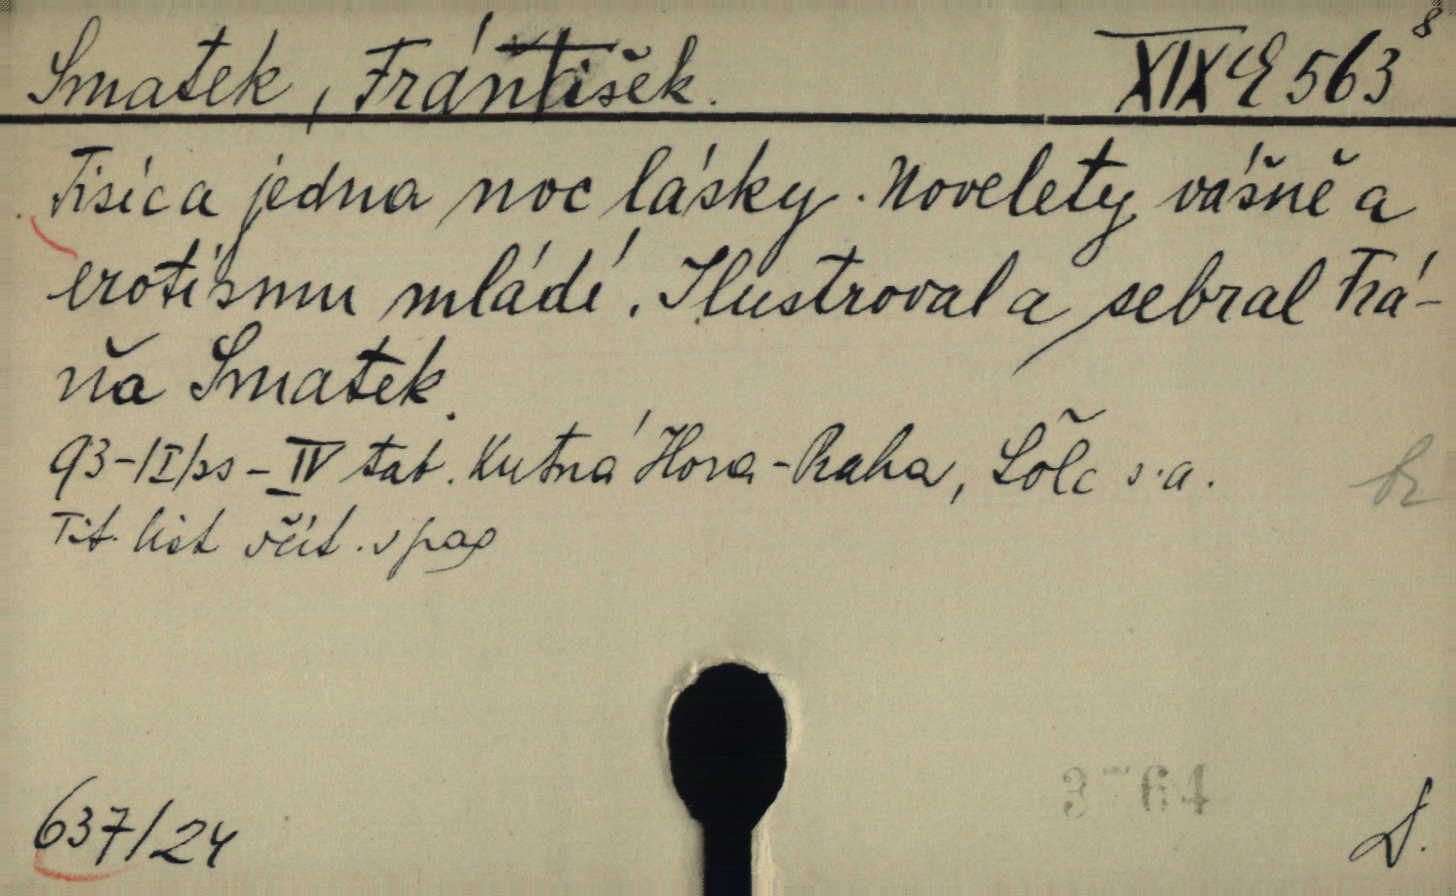 Smatek, František. XIX E 563⁸
Tisíc a jedna noc lásky. Novelety vášně a
erotismu mládí. Ilustroval a sebral Frá-
ňa Smatek.
93-/I/ss-IV tab. Kutná Hora-Praha, Šolc s.a.
Tit. list včít. v pag
637/24